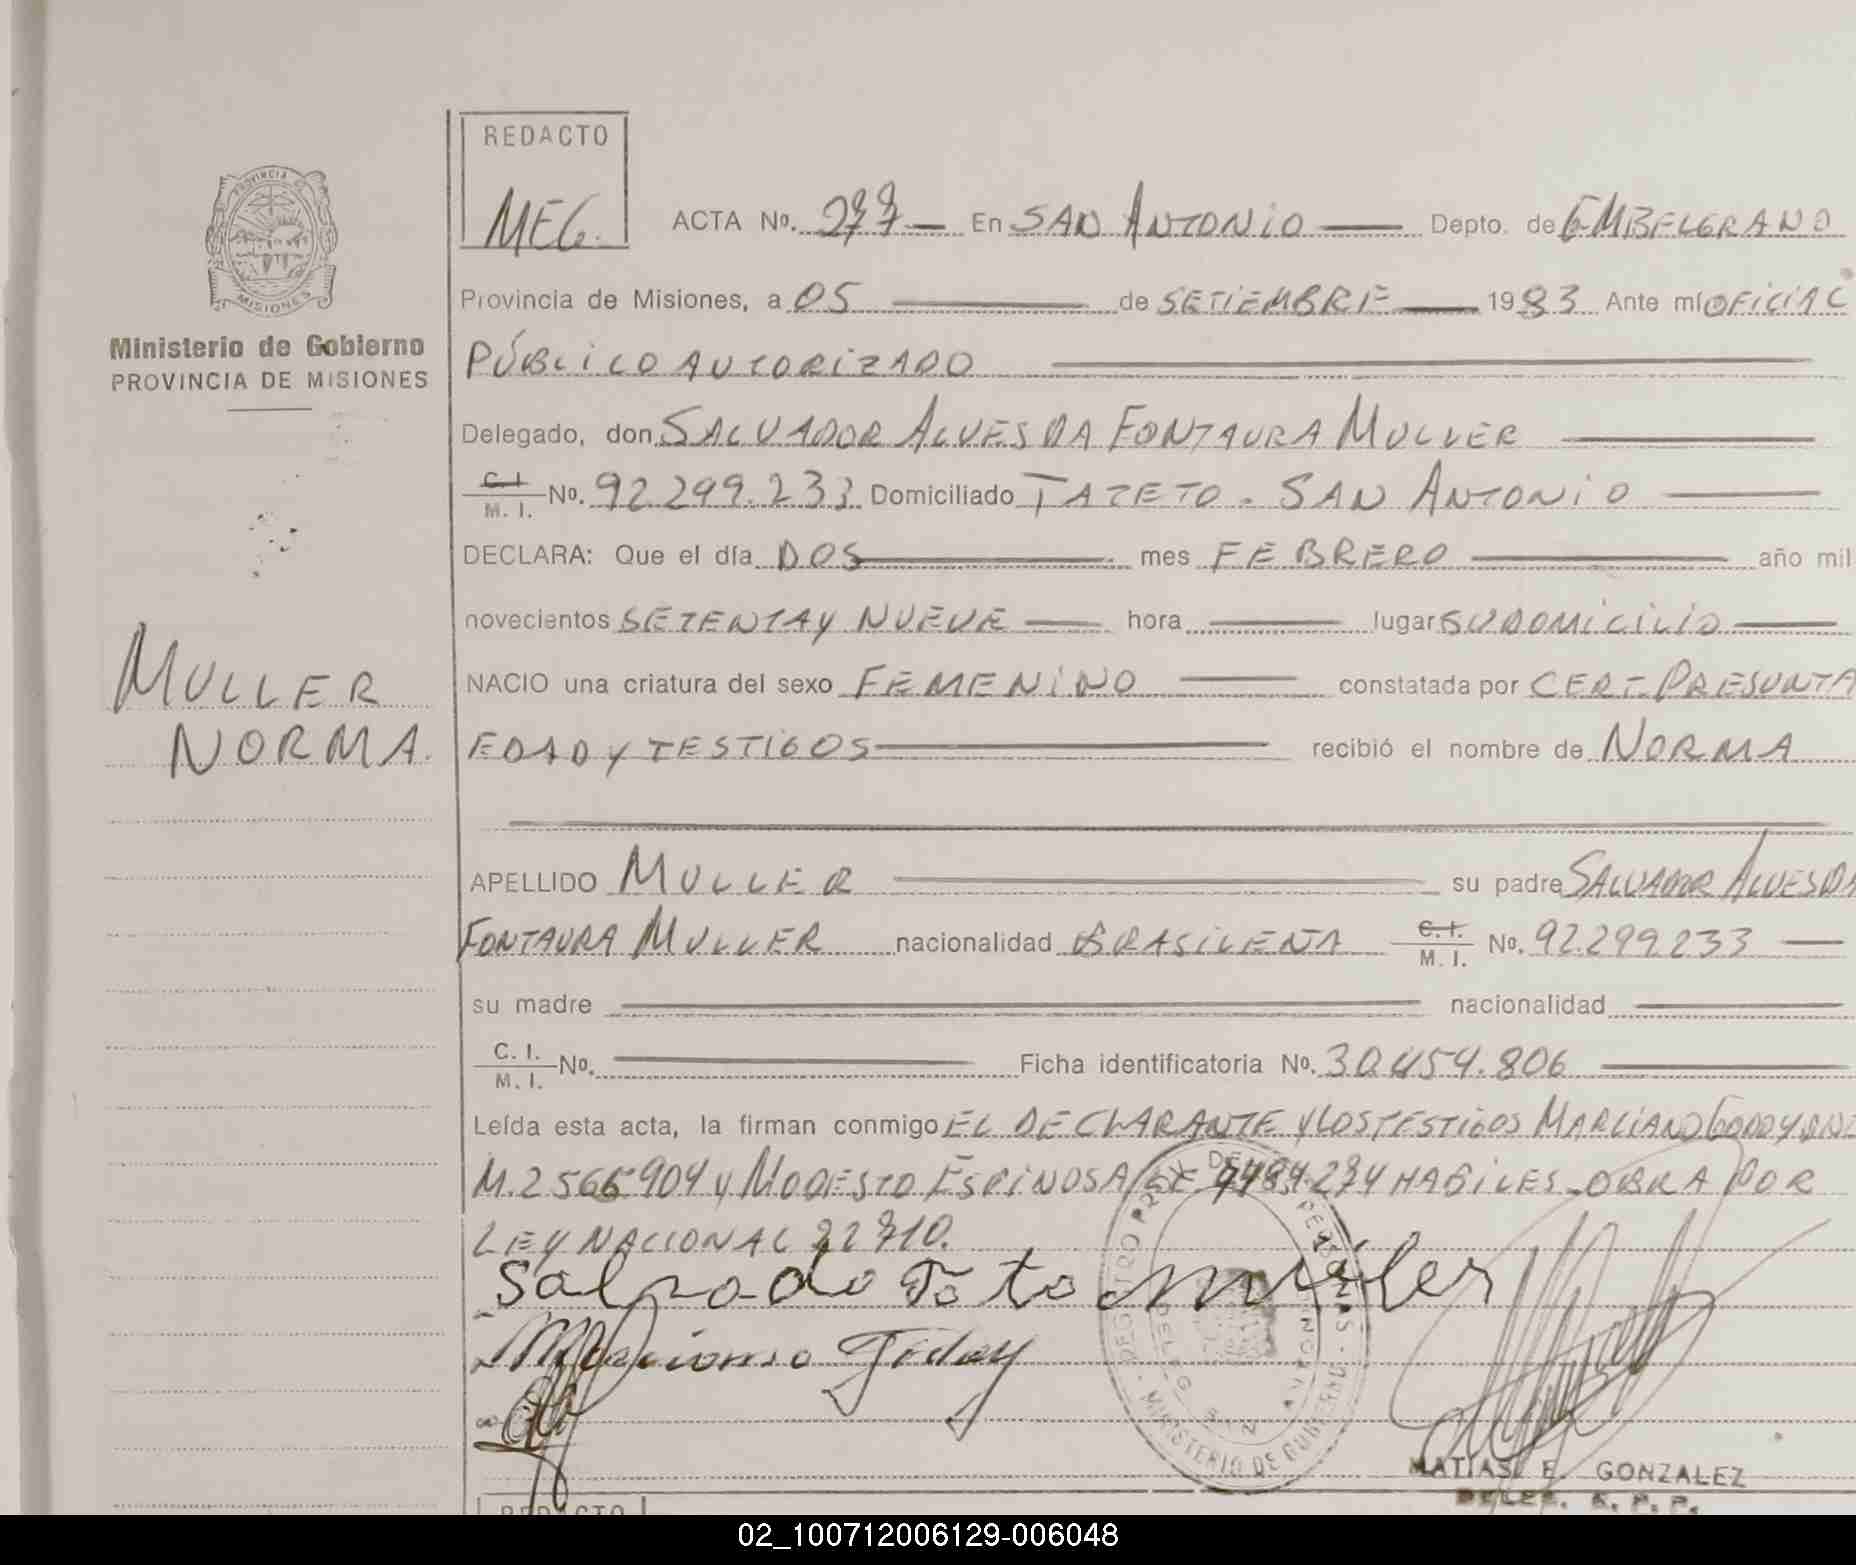 REDACTO
MEG.
ACTA No. 277 — En SAN ANTONIO — Depto. de G M BELGRANO
PROVINCIA DE
MISIONES
Ministerio de Gobierno
PROVINCIA DE MISIONES
Provincia de Misiones, a 05 — de SETIEMBRE — 1983 Ante mí OFICIAL
PÚBLICO AUTORIZADO
Delegado, don SALVADOR ALVES DA FONTAURA MULLER
C. I. M. I. No. 92.299.233 Domiciliado TATETO - SAN ANTONIO
DECLARA: Que el día DOS — mes FEBRERO — año mil
novecientos SETENTA Y NUEVE — hora — lugar SU DOMICILIO
NACIO una criatura del sexo FEMENINO — constatada por CERT. PRESUNTA
EDAD Y TESTIGOS — recibió el nombre de NORMA
MULLER
NORMA.
APELLIDO MULLER — su padre SALVADOR ALVES DA
FONTAURA MULLER nacionalidad BRASILENA C. I. M. I. No. 92.299.233 —
su madre — nacionalidad —
C. I. M. I. No. — Ficha identificatoria No. 30.454.806 —
Leída esta acta, la firman conmigo EL DECLARANTE Y LOS TESTIGOS MARCIANO GODOY DNI
M. 2566904 y MODESTO ESPINOSA 7484.274 HABILES. OBRA POR
LEY NACIONAL 22710.
Salpado To to muller
Marciano Godoy
MINISTERIO DE GOBIERNO
MATIAS E. GONZALEZ
DELEG. R. P. P.
REDACTO
02_100712006129-006048